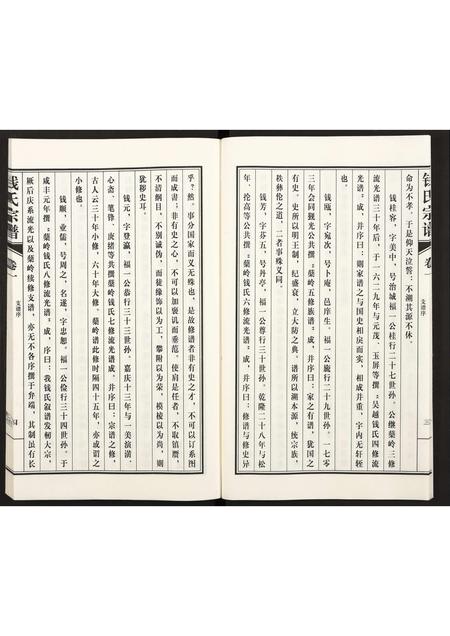 钱氏宗谱
卷一
支谱序
命为不孝。于是仰天泣誓：不溯其源不休。
钱桂容，字美中，号治城福一公桂行二十七世孙。公继蔾岭三修
流光谱三十年后于一六二九年与元茂、玉屏等撰《吴越钱氏四修流
光谱》成，并序曰：则家谱之与国史相庋而实，相成并重，字内无轩轾
也。
钱瓯，字宛次，号卜庵，邑庠生。福一公旒行二十九世孙。一七零
三年会同觐光公共撰《蔾岭五修族谱》成，并序曰：家之有谱，犹国之
有史。史所以明王制，纪盛衰，立大防之典。谱所以溯本源，统宗族，
秩彝伦之道，二者事殊义同。
钱芳，字芬五，号丹亭，福一公尊行三十世孙。乾隆二十八年与松
年、抡高等公共撰《蔾岭钱氏六修流光谱》成，并序曰：修谱与修史异
乎？然。事分国家而义无殊也，是故修谱者非有史之才，不可以订系图
而成书；非有史之心，不可以加褒讥而垂范。使肩是任者，不取镇磿，
不清纲目，不别诚伪，而徒缘饰以为工，攀附以为荣，模棱以为尚，则
犹秽史耳。
钱元，字登瀛，福一公俗行三十三世孙。嘉庆十三年与一美演潢、
心斋、笔锋、赓绪等共撰蔾岭钱氏七修流光谱成。并序曰：宗谱之修，
古人云三十年小修，六十年大修，蔾岭谱此修时隔四十五年，亦或谓之
小修也。
钱顺，业儒，号周之，名遂，字忠恕，福一公俭行三十四世孙。于
咸丰元年撰《蔾岭钱氏八修流光谱》成，序曰：我钱氏叙谱发轫大宗，
厥后庆系流光以及蔾岭续修支谱，亦无不各序撰于弁端，其制虽有长
钱氏宗谱
卷一
支谱序